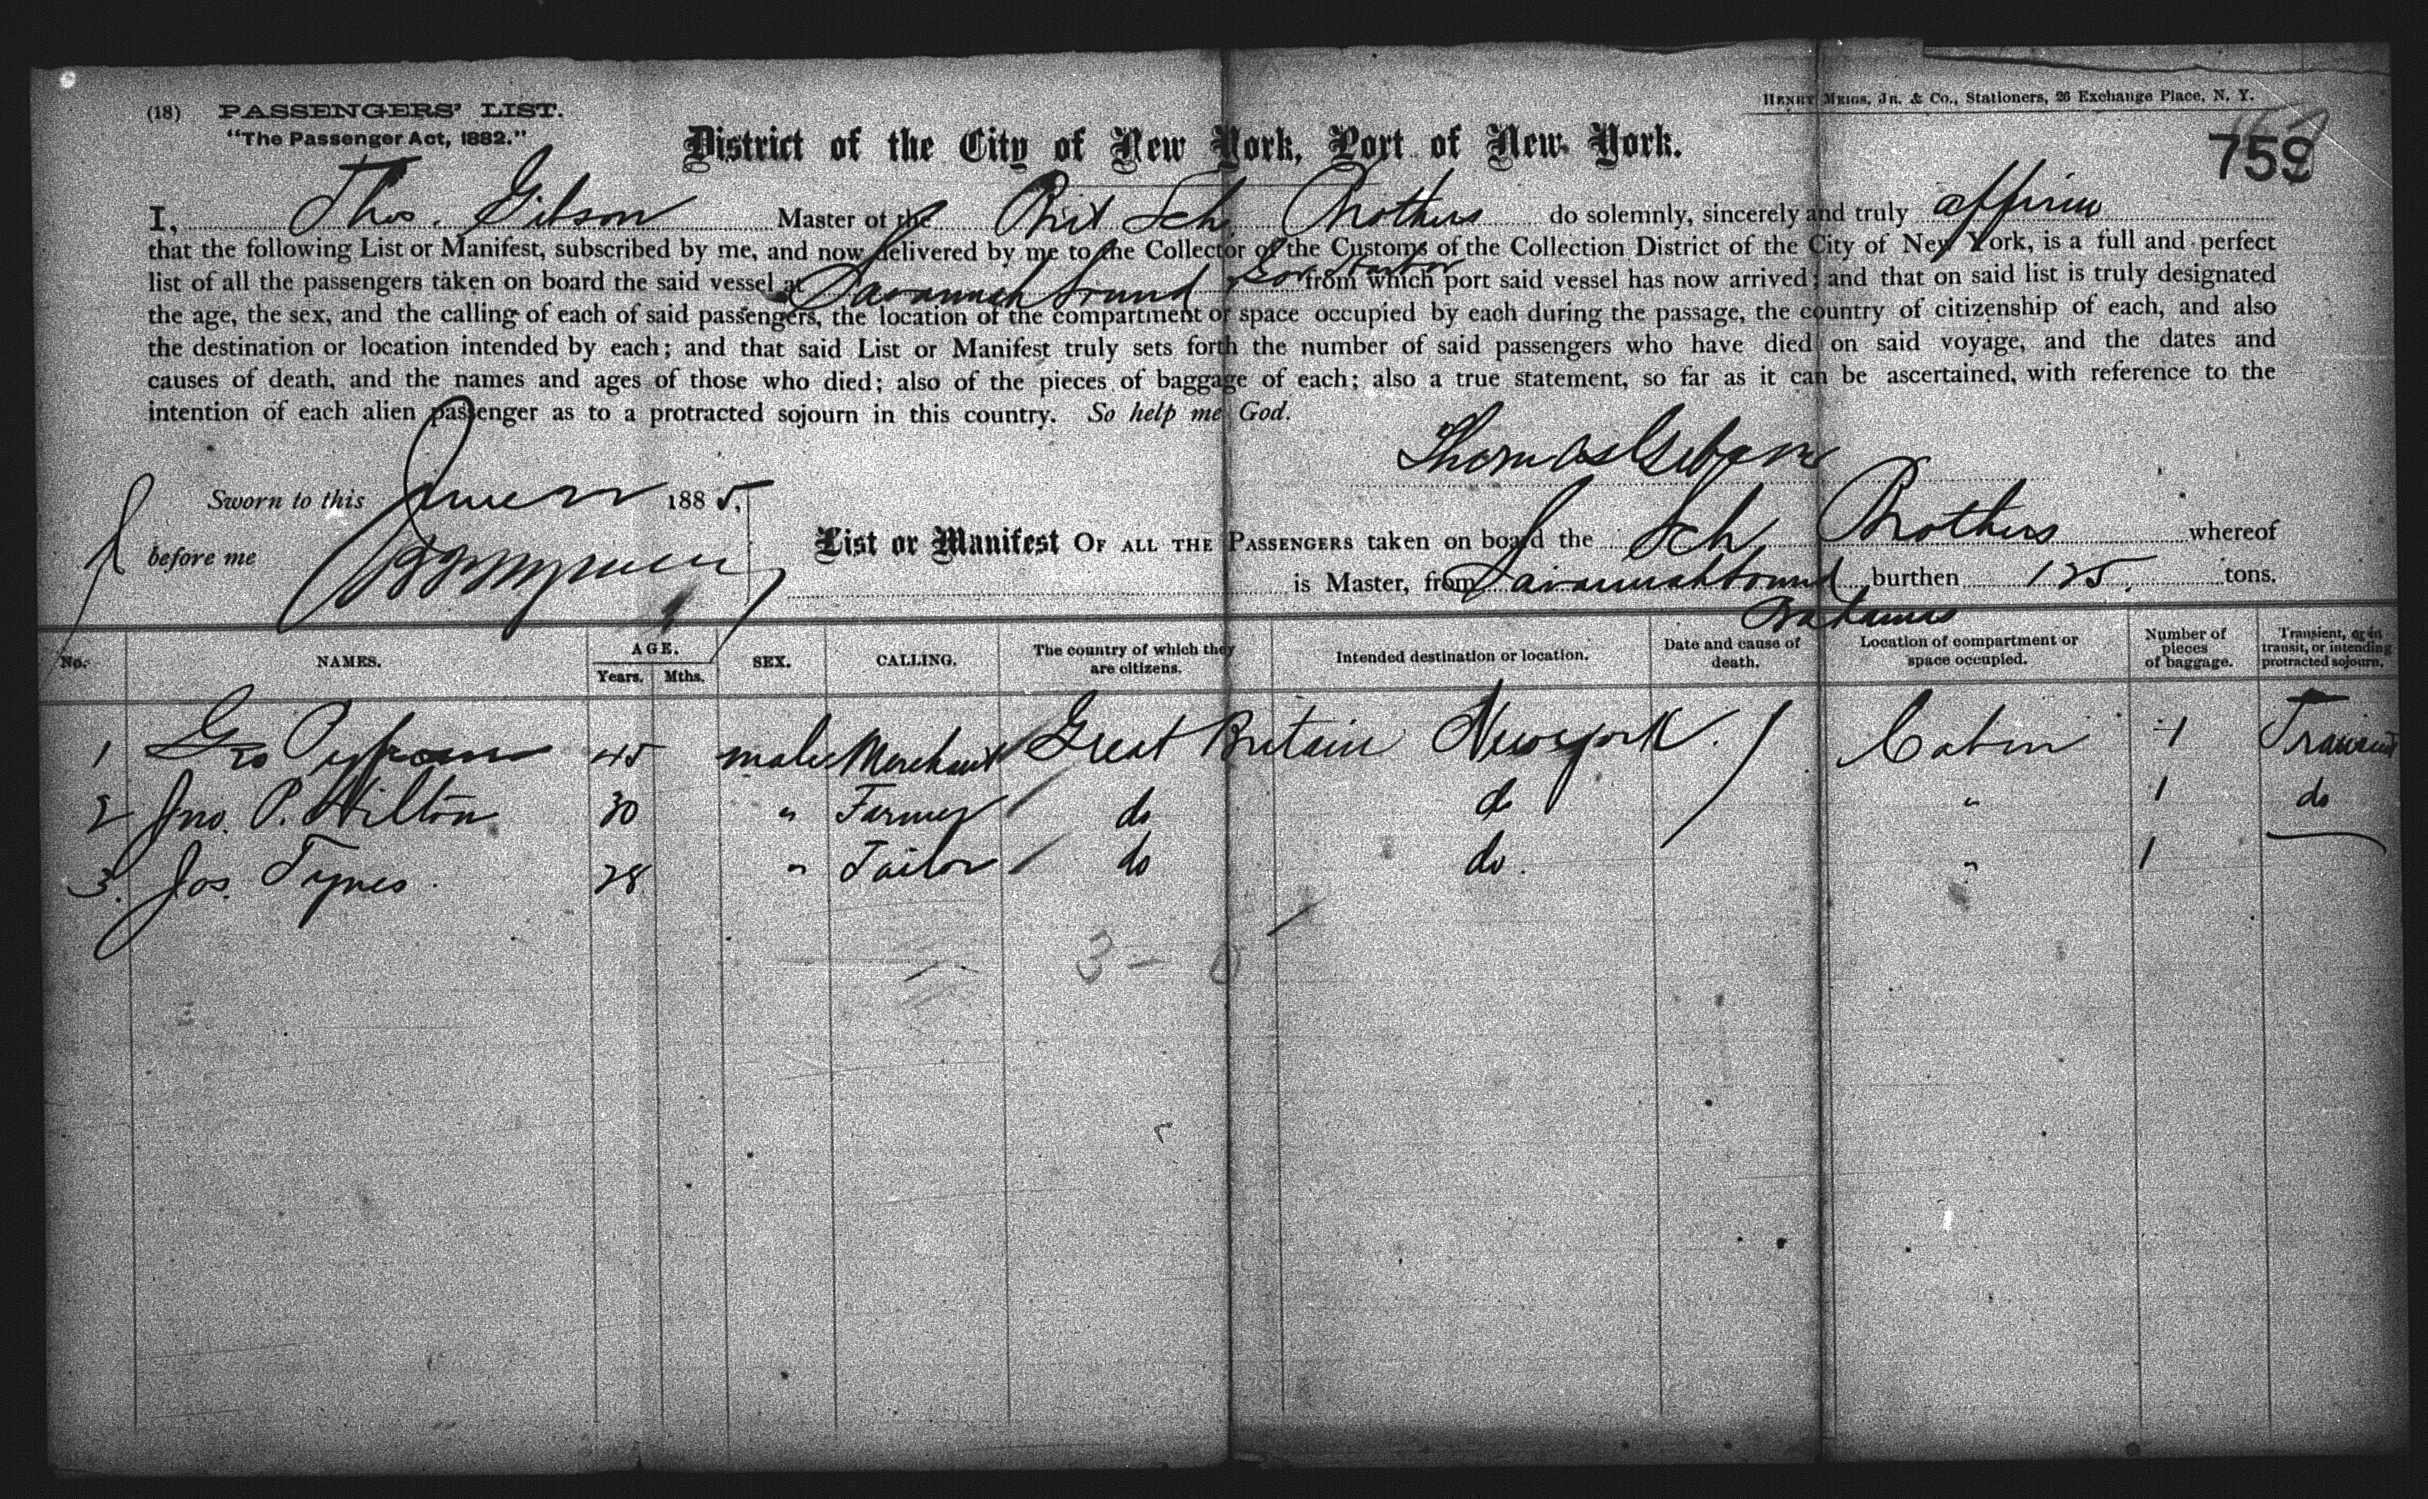 (18) PASSENGERS' LIST.
HENRY MEIGS, JR. & Co., Stationers, 26 Exchange Place, N. Y.
"The Passenger Act, 1882."
District of the City of New York, Port of New York.
759
I, Thos. Gibson Master of the Brit Sch. Brothers do solemnly, sincerely and truly affirm
that the following List or Manifest, subscribed by me, and now delivered by me to the Collector of the Customs of the Collection District of the City of New York, is a full and perfect
list of all the passengers taken on board the said vessel at Savannah Sound from which port said vessel has now arrived; and that on said list is truly designated
the age, the sex, and the calling of each of said passengers, the location of the compartment or space occupied by each during the passage, the country of citizenship of each, and also
the destination or location intended by each; and that said List or Manifest truly sets forth the number of said passengers who have died on said voyage, and the dates and
causes of death, and the names and ages of those who died; also of the pieces of baggage of each; also a true statement, so far as it can be ascertained, with reference to the
intention of each alien passenger as to a protracted sojourn in this country. So help me God.
Thomas Gibson
Sworn to this June 1885.
before me
List or Manifest OF ALL THE PASSENGERS taken on board the Sch. Brothers whereof
is Master, from Savannah Sound burthen 125. tons.
Bahamas
No. NAMES. AGE. Years. Mths. SEX. CALLING. The country of which they are citizens. Intended destination or location. Date and cause of death. Location of compartment or space occupied. Number of pieces of baggage. Transient, or in transit, or intending protracted sojourn.
1 Geo 45 male Merchant Great Britain New York. Cabin 1 Transient
2 Jno. P. Hilton 30 " Farmer do do " 1 do
3. Jos. Tynes. 28 " Tailor do do. " 1
3 - 0